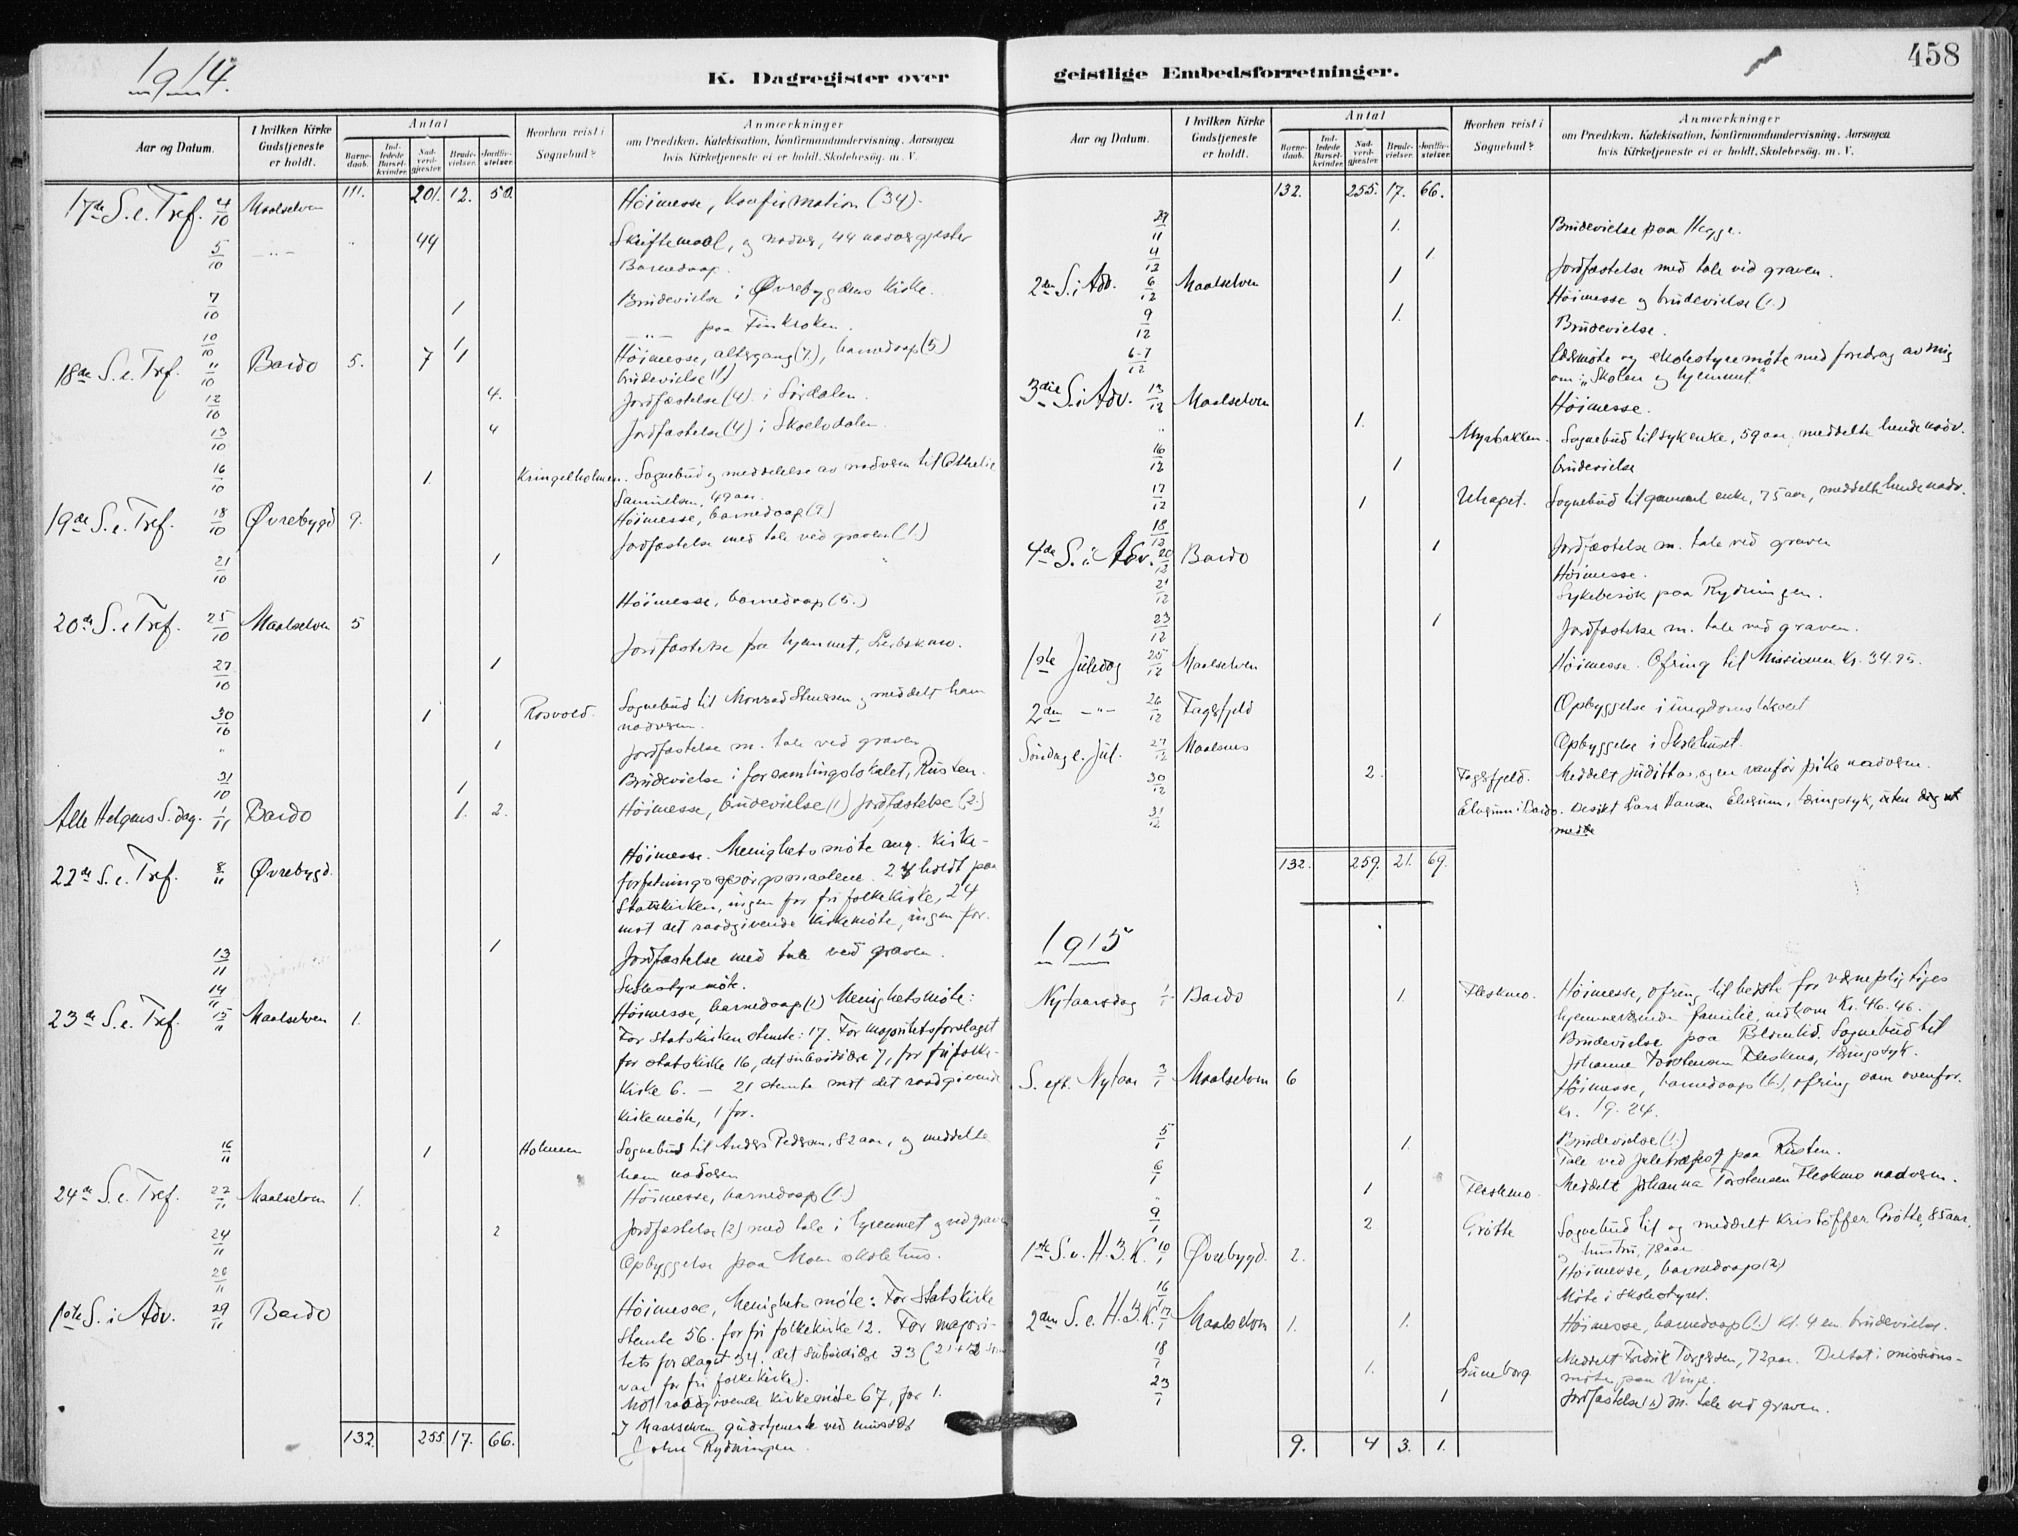 1914.
K. Dagregister over
Aar og Datum.
I hvilken Kirke Gudstjeneste er holdt.
Antal
Barnedaab.
Indledede Barselkvinder.
Nadverdgjester.
Brudevielser.
Jordfæstelser.
Hvorhen reist i Sognebud?
Anmærkninger
om Prædiken, Katekisation, Konfirmandundervisning, Aarsagen
hvis Kirketjeneste ei er holdt, Skolebesøg m. V.
17de S. e. Tref. 4/10 Maalselven 111. 201. 12. 50. Höimesse, Konfirmation (34).
5/10 — „ — 44 Skriftemaal, og nadver, 44 nadvergjester
Barnedaap.
7/10 1 Brudevielse i Øvrebygdens Kirke.
10/10 1. — „ — paa Finkroken.
18de S. e. Tref. 11/10 Bardo 5. 7 1 Höimesse, altergang (7.), barnedaap (5)
brudevielse (1)
12/10 4. Jordfæstelse (4) i Sördalen.
13/10 4 Jordfæstelse (4) i Skoelvdalen.
16/10 1. Kringelholmen. Sognebud og meddelelse av nadveren til Othelie
Samuelsen, 49 aar.
19de S. e. Tref. 18/10 Øvrebygd 9. Höimesse, barnedaap (9)
21/10 1 Jordfæstelse med tale ved graven (1.)
20de S. e. Tref. 25/10 Maalselven 5 Höimesse, barnedaap (5.)
27/10 1 Jordfæstelse paa hjemmet,
30/10 1 Rosvold. Sognebud til Monrad Stenersen og meddelt ham
nadveren.
„ 1 Jordfæstelse m. tale ved graven
31/10 1 Brudevielse i forsamlingslokalet, Rusten.
Alle Helgens S. dag. 1/11 Bardo 1. 2. Höimesse, brudevielse (1) Jordfæstelse (2.)
22de S. e. Tref. 8/11 Øvrebygd. Höimesse. Menighetsmöte ang. Kirke-
forfatningsspörgsmaalene. 24 holdt paa
Statskirken, ingen for fri folkekirke, 24
mot det raadgivende Kirkemöte, ingen for.
13/11 1 Jordfæstelse med tale ved graven.
14/11 Skolestyremöte.
23de S. e. Tref. 15/11 Maalselven 1. Höimesse, barnedaap (1) Menighetsmöte:
For Statskirken stemte: 17. For majoritetsforslaget
for statskirke 16, det subsidiære 7, for fri folke-
kirke 6. — 21 stemte mot det raadgivende
kirkemöte, 1 for.
16/11 1 Holmen Sognebud til Anders Pedersen, 82 aar, og meddelte
ham nadveren
24de S. e. Tref. 22/11 Maalselven 1. Höimesse, barnedaap (1.)
24/11 2 Jordfæstelse (2) med tale i hjemmet og ved graven
26/11 Opbyggelse paa Moen skolehus.
1ste S. i Adv. 29/11 Bardo Höimesse, Menighetsmöte: For Statskirke
stemte 56. for fri folkekirke 12. For majori-
tets forslaget 34. det subsidiære 33 (21 + 12 som
var for fri folkekirke).
Mot raadgivende kirkemöte 67, for 1.
I Maalselven gudstjeneste ved
John Rydningen.
132. 255 17. 66.
458
geistlige Embedsforretninger.
Aar og Datum.
I hvilken Kirke Gudstjeneste er holdt.
Antal
Barnedaab.
Indledede Barselkvinder.
Nadverdgjester.
Brudevielser.
Jordfæstelser.
Hvorhen reist i Sognebud?
Anmærkninger
om Prædiken, Katekisation, Konfirmandundervisning, Aarsagen
hvis Kirketjeneste ei er holdt, Skolebesøg m. V.
132. 255. 17. 66.
29/11 1. Brudevielse paa Hegge.
4/12 1 Jordfæstelse med tale ved graven.
2den S. i Adv. 6/12 Maalselven 1 Höimesse og brudevielse (1.)
9/12 1. Brudevielse.
6-7/12 og skolestyremöte med foredrag av mig
om: „Skolen og hjemmet."
3die S. i Adv. 13/12 Maalselven Höimesse.
„ 1. Myrbakken. Sognebud til syk enke, 59 aar, meddelte hende nadv.
16/12 1 brudevielse
17/12 1 Sognebud til gammel enke, 75 aar, meddelte hende nadv.
18/12 1 Jordfæstelse m. tale ved graven
4de S. i Adv. 20/12 Bardo Höimesse.
21/12 Sykebesök paa Rydningen.
23/12 1 Jordfæstelse m. tale ved graven.
1ste Juledag 25/12 Maalselven Höimesse. Ofring til Missionen kr. 34.95.
2den — „ — 26/12 Fagerfjeld Opbyggelse i ungdomslokalet
Söndag e. Jul. 27/12 Maalsnes Opbyggelse i Skolehuset.
30/12 2. Fagerfjeld. Meddelt og en vanför pike nadveren.
31/12 i Bardo. besökt Lars Hansen tæringssyk,
132. 259. 21. 69.
1915
Nytaarsdag 1/1 Bardo 1. Fleskmo. Höimesse, ofring til bedste for værnepligtiges
hjemmeværende familie, indkom Kr. 46.46.
Brudevielse paa Sognebud til
Johanne Torstensen Fleskmo, tæringssyk.
S. eft. Nytaar 3/1 Maalselven 6 Höimesse, barnedaap (6.), ofring som ovenfor.
kr. 19.24.
5/1 1. Brudevielse (1.)
6/1 Tale ved juletræfest paa Rusten.
„ 1 Fleskmo. Meddelt Johanna Torstensen Fleskmo nadveren.
9/1 2 Grötte Sognebud til og meddelt Kristoffer Grötte, 85 aar,
og hustru, 78 aar
1ste S. e. H. 3. K. 10/1 Øvrebygd. 2. Höimesse, barnedaap (2)
16/1 Möte i skolestyret.
2den S. e. H. 3. K. 17/1 Maalselven 1. 1. Höimesse, barnedaap (1.) kl. 4 em. brudevielse.
18/1 1. Luneborg Meddelt Fredrik Torgersen, 72 aar. Deltat i missions-
möte paa Vinje.
23/1 1 Jordfæstelse (1) m. tale ved graven.
9. 4 3. 1.